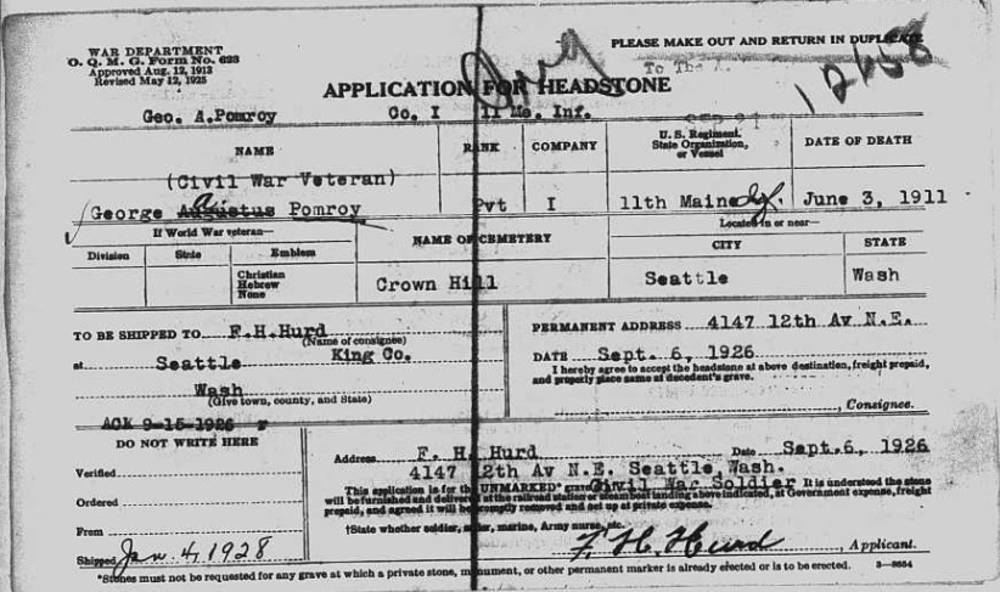 WAR DEPARTMENT
O. Q. M. G. Form No. 623
Approved Aug. 12, 1913
Revised May 12, 1925
PLEASE MAKE OUT AND RETURN IN DUPLICATE
To The
APPLICATION FOR HEADSTONE
Geo. A.Pomroy Co. I 11 Me. Inf.
NAME RANK COMPANY U. S. Regiment, State Organization, or Vessel DATE OF DEATH
(Civil War Veteran)
George Augustus Pomroy Pvt I 11th Maine June 3, 1911
If World War veteran— NAME OF CEMETERY Located in or near—
Division State Emblem CITY STATE
Christian
Hebrew
None
Crown Hill Seattle Wash
TO BE SHIPPED TO F.H.Hurd
(Name of consignee)
at Seattle King Co.
Wash
(Give town, county, and State)
PERMANENT ADDRESS 4147 12th Av N.E.
DATE Sept. 6, 1926
I hereby agree to accept the headstone at above destination, freight prepaid,
and properly place same at decedent's grave.
, Consignee.
ACK 9-15-1926
DO NOT WRITE HERE
Verified
Ordered
From
Shipped Jan. 4, 1928
F. H. Hurd Date Sept.6, 1926
Address 4147 12th Av N.E. Seattle, Wash.
This application is for the UNMARKED* grave Civil War Soldier It is understood the stone
will be furnished and delivered at the railroad station or steamboat landing above indicated, at Government expense, freight
prepaid, and agreed it will be promptly removed and set up at private expense.
†State whether soldier, sailor, marine, Army nurse, etc.
F. H. Hurd , Applicant.
*Stones must not be requested for any grave at which a private stone, monument, or other permanent marker is already erected or is to be erected.